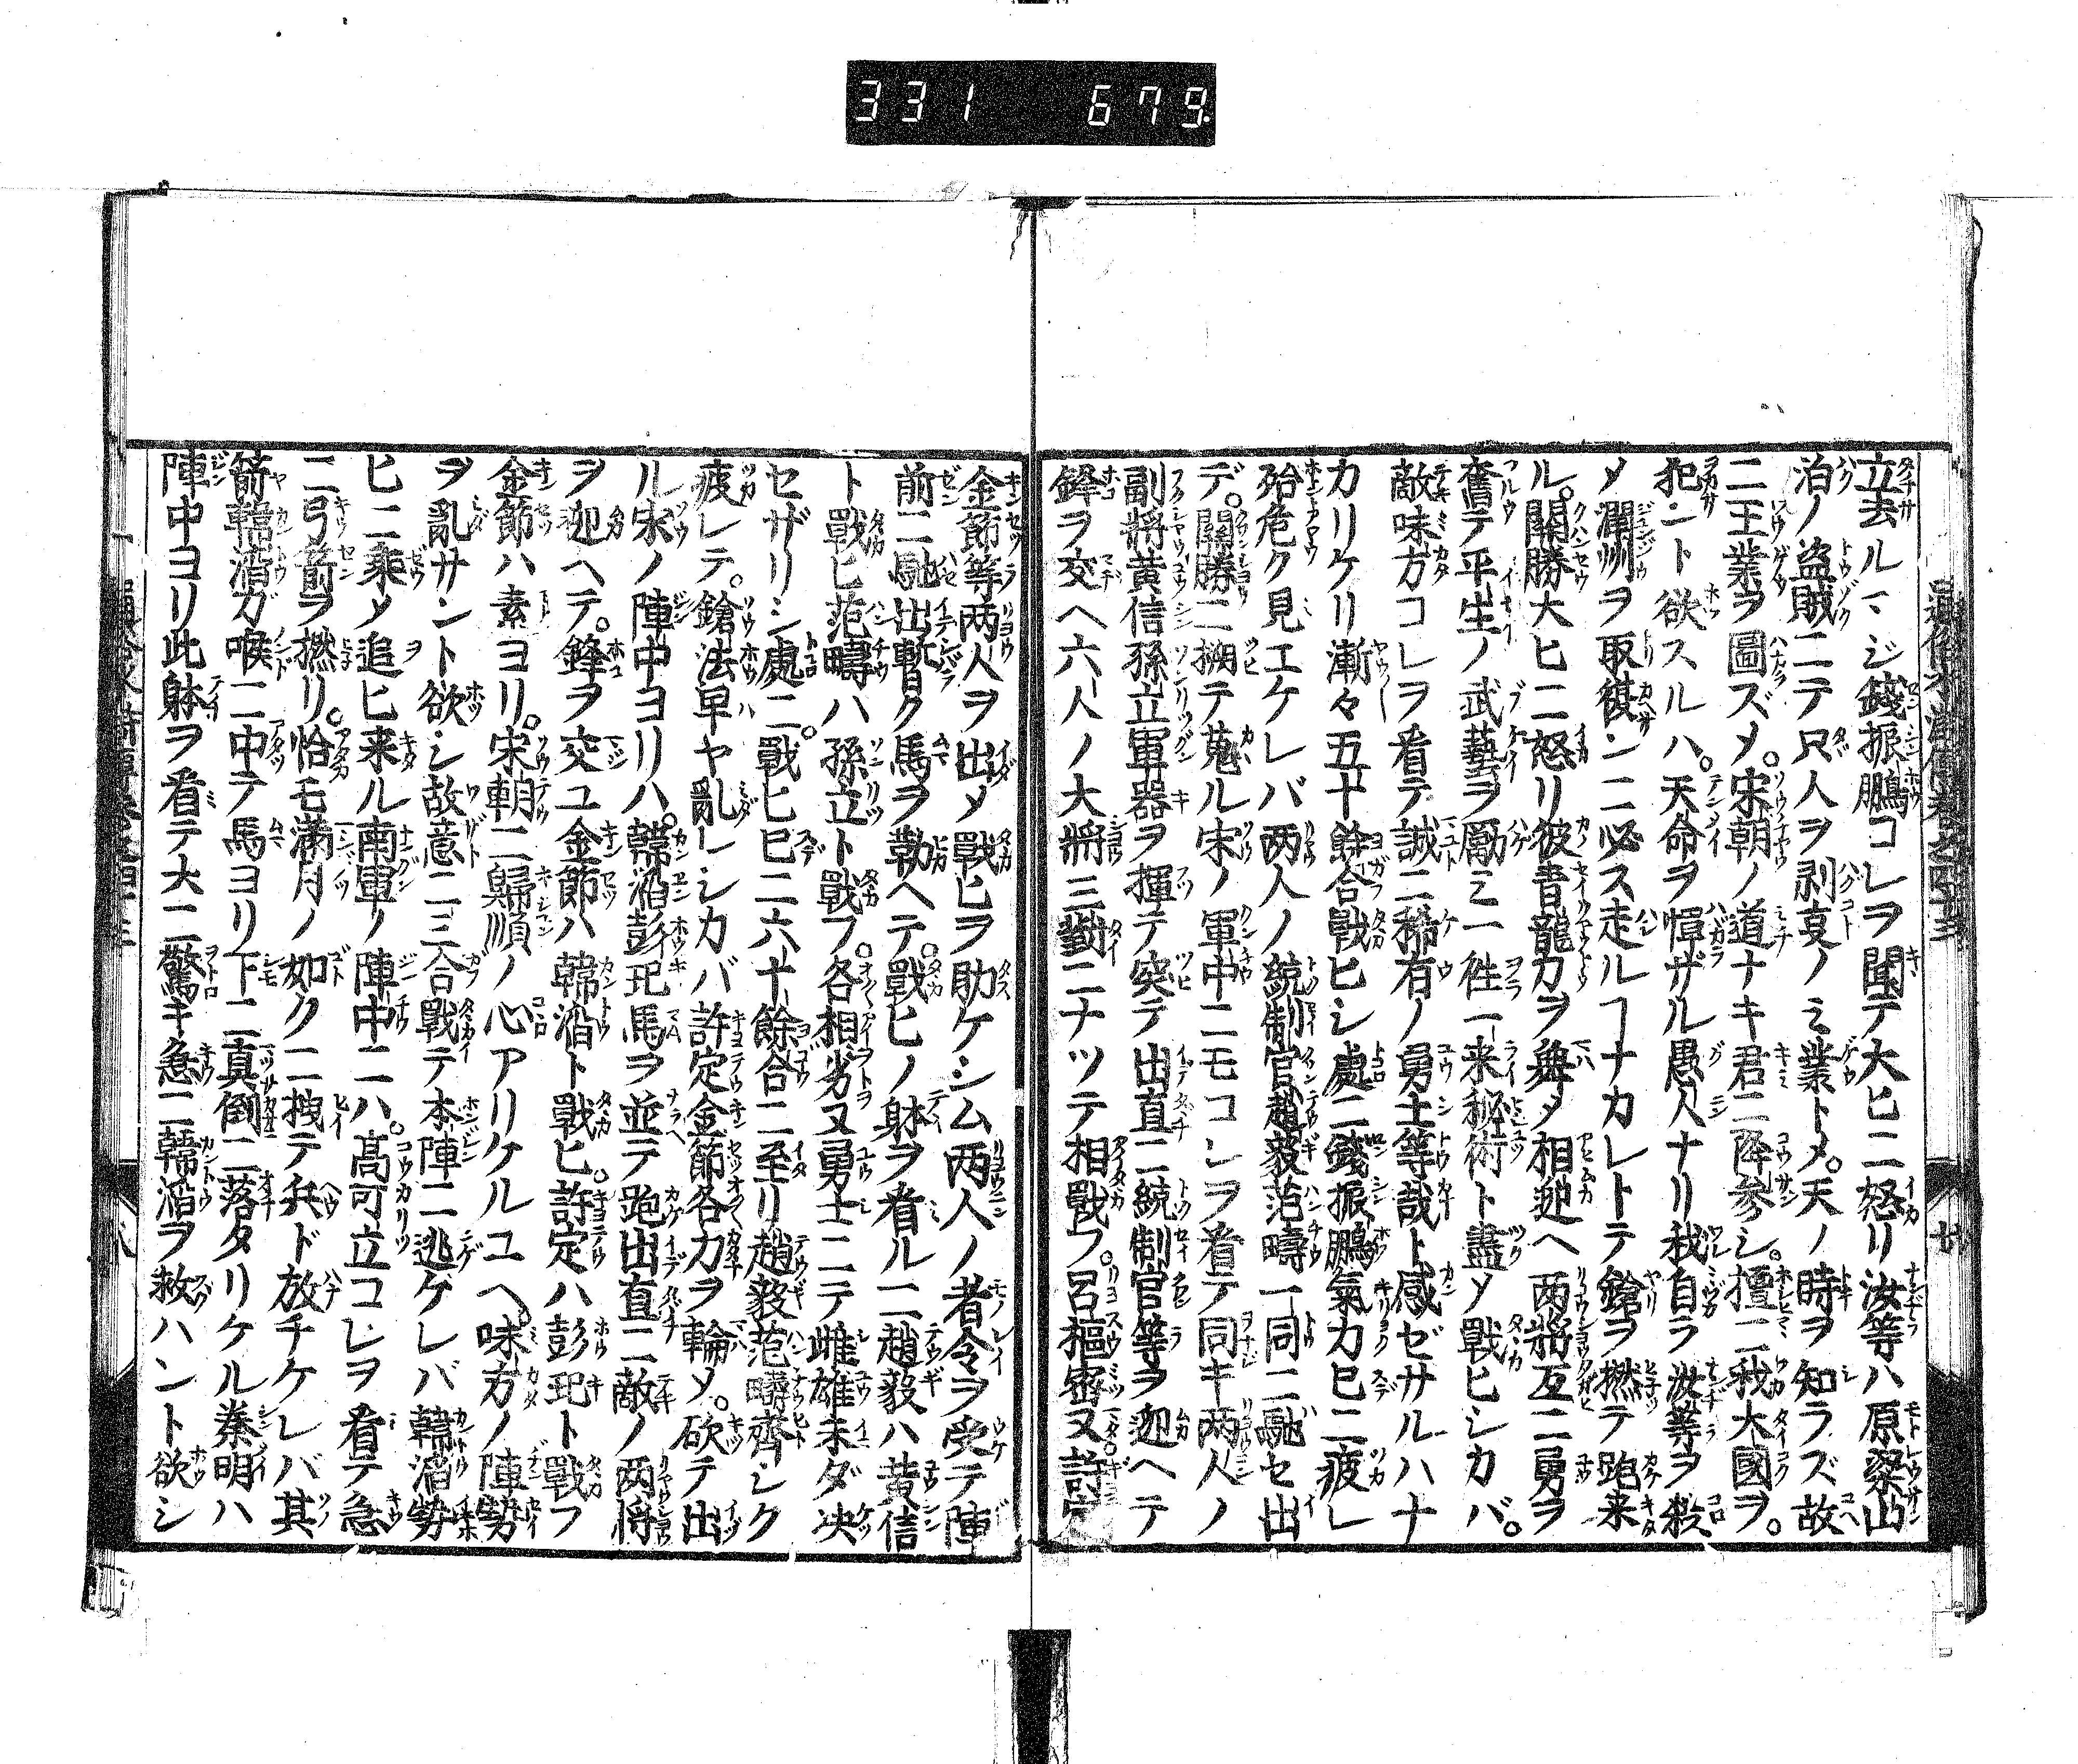 331 679
立去ルマジ錢振鵬コレヲ聞テ大ヒニ怒リ汝等ハ原梁山
泊ノ盗賊ニテ只人ヲ剥㕝ノミ業トメ。天ノ時ヲ知ラズ故
ニ王業ヲ圖ズメ。宋朝ノ道ナキ君ニ降参シ。擅ニ我大國ヲ。
犯ント欲スルハ。天命ヲ憚ザル愚人ナリ我自ラ汝等ヲ殺
メ潤州ヲ取復ンニ必ス走ルヿナカレトテ鎗ヲ撚テ跑来
ル。關勝大ヒニ怒リ彼青龍刀ヲ舞メ相迎ヘ両將互ニ勇ヲ
奮テ平生ノ武藝ヲ勵ミ一徃一来秘術ト盡メ戰ヒシカバ。
敵味方コレヲ看テ誠ニ稀有ノ勇士等哉ト感ゼサルハナ
カリケリ漸々五十餘合戰ヒシ處ニ錢振鵬氣力已ニ疲レ
殆危ク見エケレバ両人ノ統制官趙毅范疇一同ニ馳セ出
デ。關勝ニ搠テ蒐ル宋ノ軍中ニモコレヲ看テ同キ両人ノ
副將黄信孫立軍器ヲ揮テ突テ出直ニ統制官等ヲ迎ヘテ
鋒ヲ交ヘ六人ノ大將三對ニナツテ相戰フ。呂樞密又許定
金節等両人ヲ出メ戰ヒヲ助ケシム両人ノ者令ヲ受テ陣
前ニ馳出暫ク馬ヲ勒ヘテ。戰ヒノ躰ヲ看ルニ趙毅ハ黄信
ト戰ヒ范疇ハ孫立ト戰フ。各相劣又勇士ニテ雌雄未ダ决
セザリシ處ニ。戰ヒ已ニ六十餘合ニ至リ趙毅范疇齊シク
疲レテ。鎗法早ヤ亂レシカバ許定金節各力ヲ輪メ。砍テ出
ル宋ノ陣中ヨリハ。韓滔彭玘馬ヲ並テ跑出直ニ敵ノ両將
ヲ迎ヘテ。鋒ヲ交ユ金節ハ韓滔ト戰ヒ。許定ハ彭玘ト戰フ
金節ハ素ヨリ。宋朝ニ歸順ノ心アリケルユヘ。味方ノ陣勢
ヲ亂サント欲シ故意ニ三合戰テ本陣ニ逃ゲレバ韓滔勢
ヒニ乘メ追ヒ来ル南軍ノ陣中ニハ。高可立コレヲ看テ急
ニ弓箭ヲ撚リ。恰モ滿月ノ如クニ拽テ兵ド放チケレバ其
箭韓滔ガ喉ニ中テ馬ヨリ下ニ真倒ニ落タリケル秦明ハ
陣中ヨリ此躰ヲ看テ大ニ驚キ急ニ韓滔ヲ救ハント欲シ